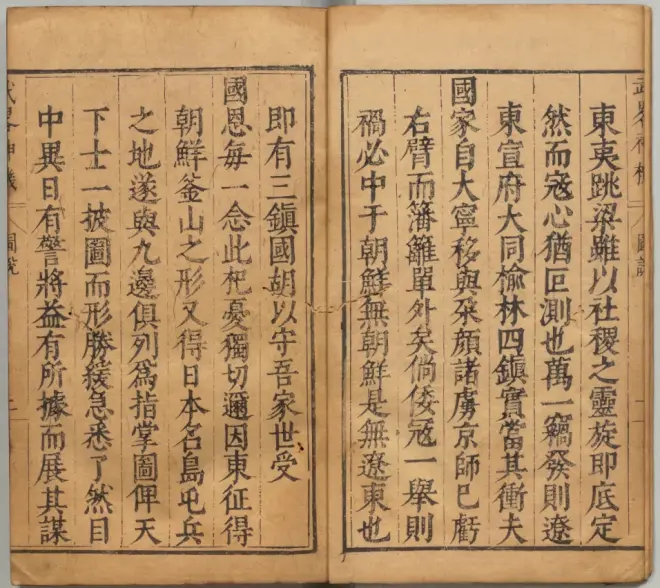 東夷跳梁雖以社稷之靈旋即底定
然而寇心猶叵測也萬一竊發則遼
東宣府大同榆林四鎮實當其衝夫
國家自大寧移與朶顏諸虜京師已虧
右臂而籓籬單外矣倘倭寇一舉則
禍必中于朝鮮無朝鮮是無遼東也
即有三鎮國胡以守吾家世受
國恩每一念此杞憂獨切邇因東征得
朝鮮釜山之形又得日本名島屯兵
之地遂與九邊俱列爲指掌圖俾天
下士一披圖而形勝緩急悉了然目
中異日有警將益有所據而展其謀